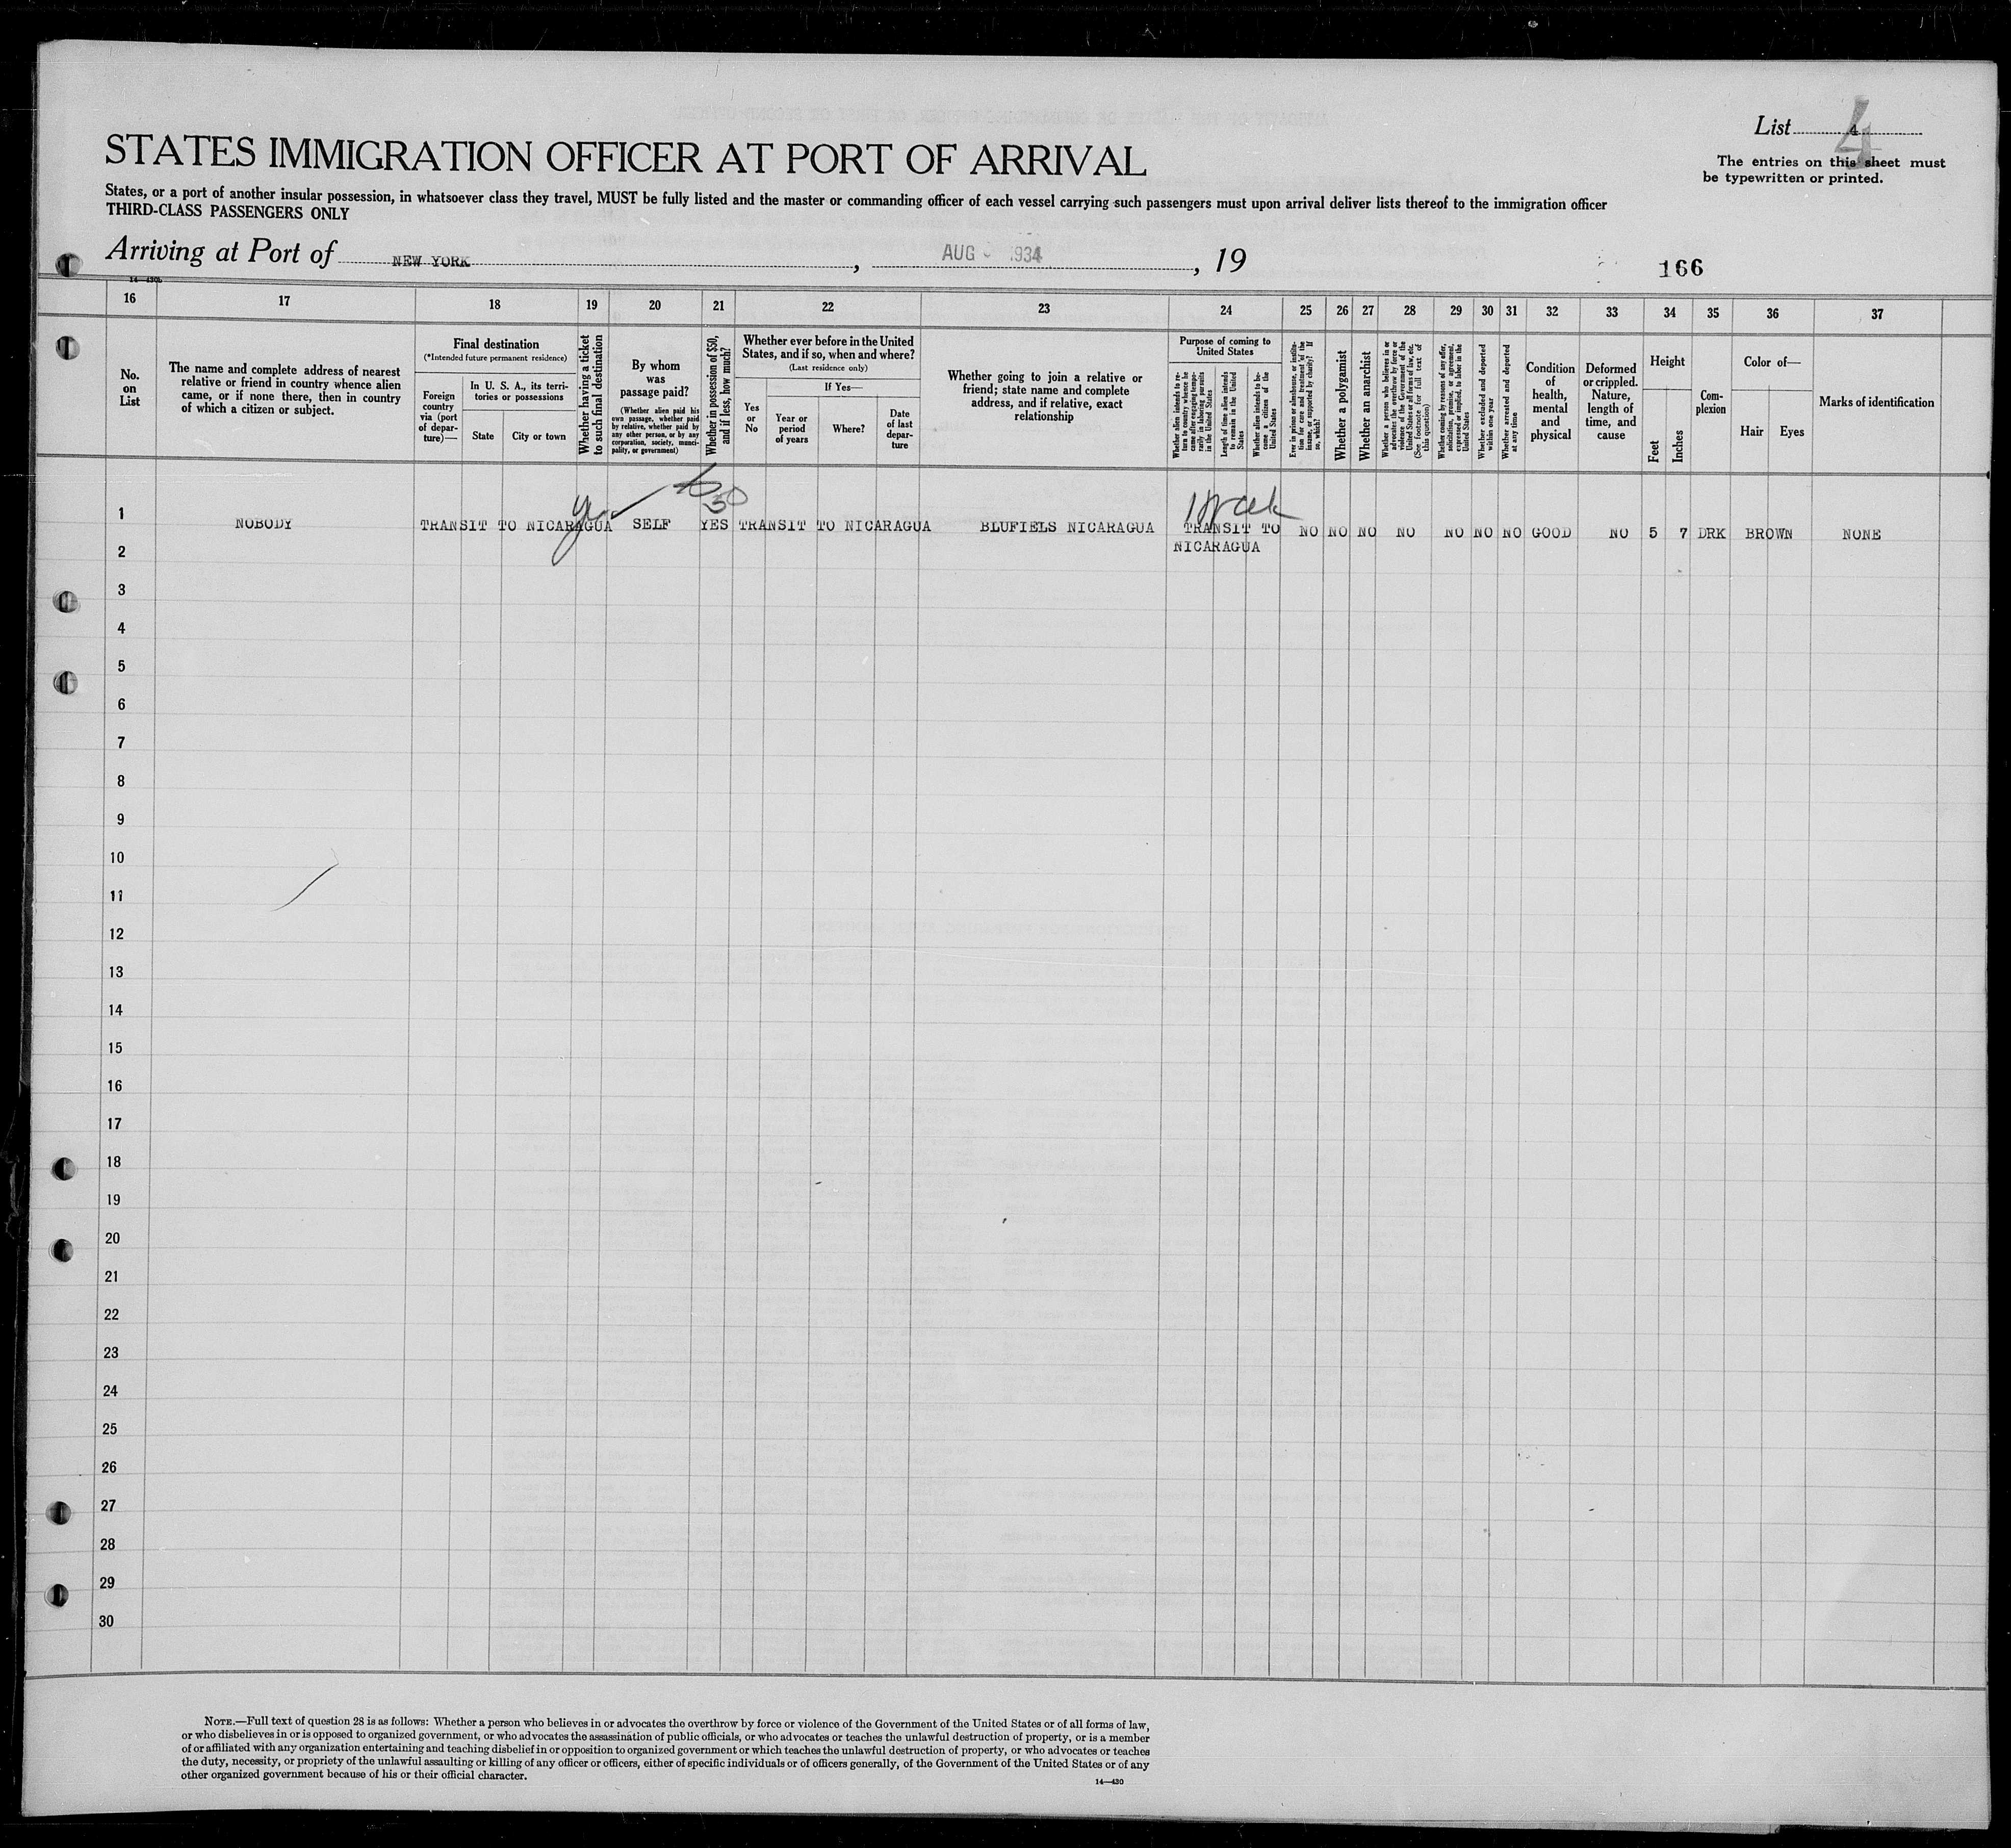 List 4
4
STATES IMMIGRATION OFFICER AT PORT OF ARRIVAL
The entries on this sheet must
be typewritten or printed.
States, or a port of another insular possession, in whatsoever class they travel, MUST be fully listed and the master or commanding officer of each vessel carrying such passengers must upon arrival deliver lists thereof to the immigration officer
THIRD-CLASS PASSENGERS ONLY
Arriving at Port of NEW YORK, AUG 1934, 19
166
14—430b
16 17 18 19 20 21 22 23 24 25 26 27 28 29 30 31 32 33 34 35 36 37
No.
on
List
The name and complete address of nearest
relative or friend in country whence alien
came, or if none there, then in country
of which a citizen or subject.
Final destination
(*Intended future permanent residence)
Foreign
country
via (port
of depar-
ture)—
In U. S. A., its terri-
tories or possessions
State
City or town
Whether having a ticket
to such final destination
By whom
was
passage paid?
(Whether alien paid his
own passage, whether paid
by relative, whether paid by
any other person, or by any
corporation, society, munci-
pality, or government)
Whether in possession of $50,
and if less, how much?
Whether ever before in the United
States, and if so, when and where?
(Last residence only)
Yes
or
No
If Yes—
Year or
period
of years
Where?
Date
of last
depar-
ture
Whether going to join a relative or
friend; state name and complete
address, and if relative, exact
relationship
Purpose of coming to
United States
Whether alien intends to re-
turn to country whence he
came after engaging tempo-
rarily in laboring pursuits
in the United States
Length of time alien intends
to remain in the United
States
Whether alien intends to be-
come a citizen of the
United States
Ever in prison or almshouse, or institu-
tion for care and treatment of the
insane, or supported by charity? If
so, which?
Whether a polygamist
Whether an anarchist
Whether a person who believes in or
advocates the overthrow by force or
violence of the Government of the
United States or all forms of law, etc.
(See footnote for full text of
this question)
Whether coming by reasons of any offer,
solicitation, promise, or agreement,
expressed or implied, to labor in the
United States
Whether excluded and deported
within one year
Whether arrested and deported
at any time
Condition
of
health,
mental
and
physical
Deformed
or crippled.
Nature,
length of
time, and
cause
Height
Feet
Inches
Com-
plexion
Color of—
Hair
Eyes
Marks of identification
yes
50
1 week
1 NOBODY TRANSIT TO NICARAGUA SELF YES TRANSIT TO NICARAGUA BLUFIELS NICARAGUA TRANSIT TO NO NO NO NO NO NO NO GOOD NO 5 7 DRK BROWN NONE
2 NICARAGUA
3
4
5
6
7
8
9
10
11
12
13
14
15
16
17
18
19
20
21
22
23
24
25
26
27
28
29
30
NOTE.—Full text of question 28 is as follows: Whether a person who believes in or advocates the overthrow by force or violence of the Government of the United States or of all forms of law,
or who disbelieves in or is opposed to organized government, or who advocates the assassination of public officials, or who advocates or teaches the unlawful destruction of property, or is a member
of or affiliated with any organization entertaining and teaching disbelief in or opposition to organized government or which teaches the unlawful destruction of property, or who advocates or teaches
the duty, necessity, or propriety of the unlawful assaulting or killing of any officer or officers, either of specific individuals or of officers generally, of the Government of the United States or of any
other organized government because of his or their official character.
14—430